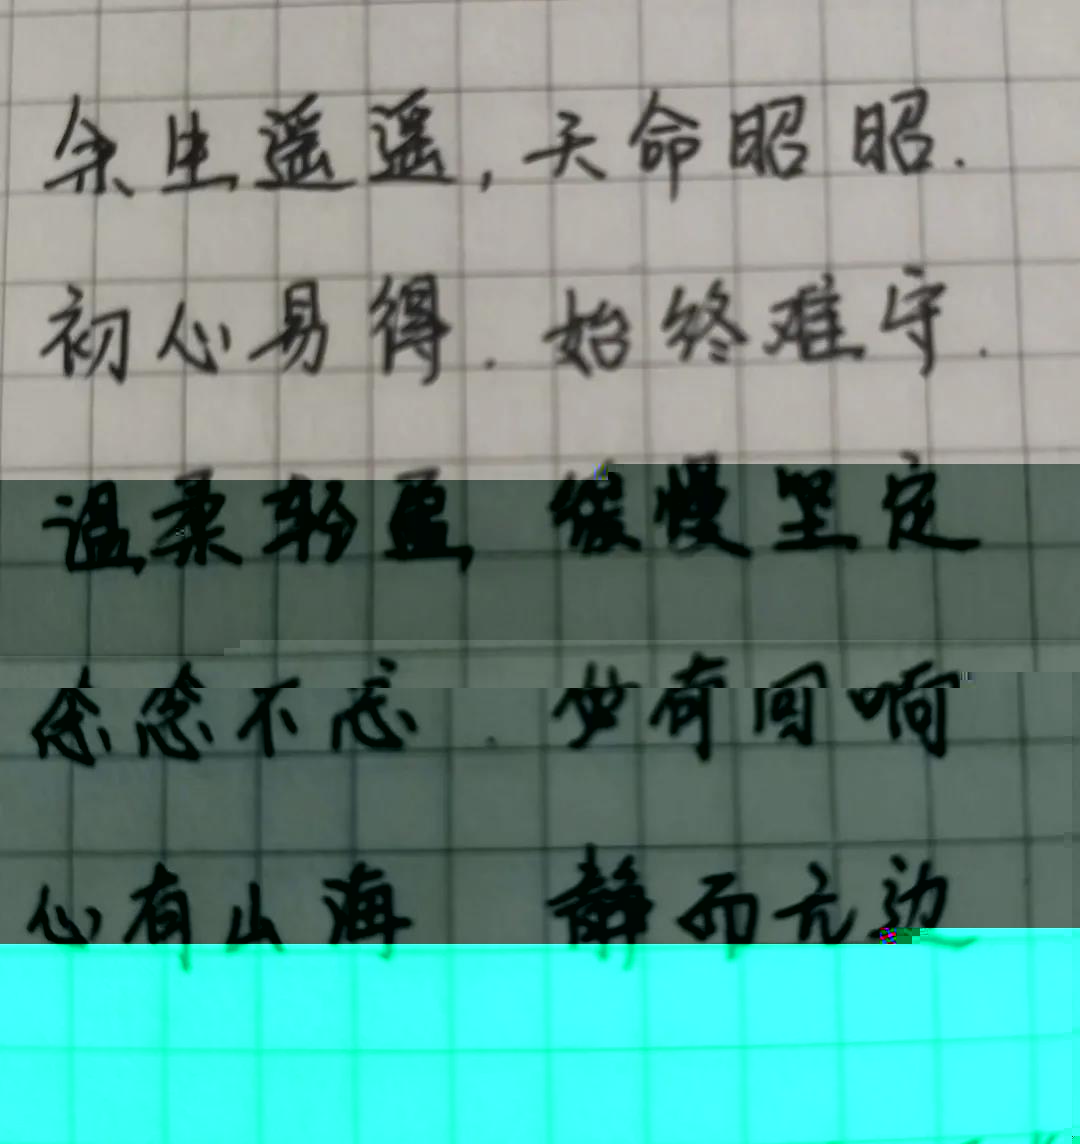 余生遥遥,天命昭昭.
初心易得.始终难守.
温柔轻盈,缓慢坚定
念念不忘.必有回响
心有山海 静而无边